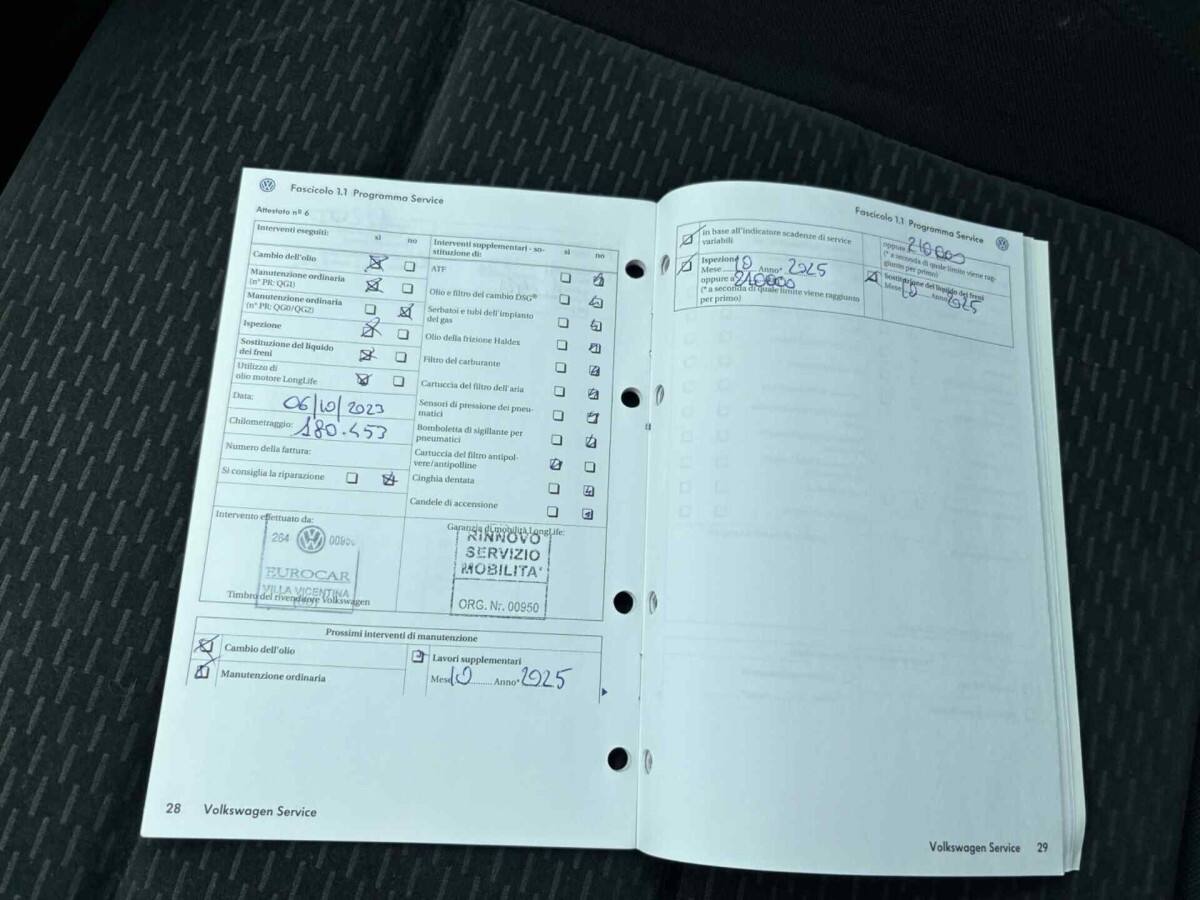 Fascicolo 1.1 Programma Service
Attestato nº 6
Interventi eseguiti:
sì no
Cambio dell'olio
Manutenzione ordinaria
(nº PR: QG1)
Manutenzione ordinaria
(nº PR: QG0/QG2)
Ispezione
Sostituzione del liquido
dei freni
Utilizzo di
olio motore LongLife
Data: 06/10/2023
Chilometraggio: 180.453
Numero della fattura:
Si consiglia la riparazione
Interventi supplementari - so-
stituzione di:
sì no
ATF
Olio e filtro del cambio DSG®
Serbatoi e tubi dell'impianto
del gas
Olio della frizione Haldex
Filtro del carburante
Cartuccia del filtro dell'aria
Sensori di pressione dei pneu-
matici
Bomboletta di sigillante per
pneumatici
Cartuccia del filtro antipol-
vere/antipolline
Cinghia dentata
Candele di accensione
Intervento effettuato da:
264 00950
EUROCAR
VILLA VICENTINA
Timbro del rivenditore Volkswagen
Garanzia di mobilità LongLife:
RINNOVO
SERVIZIO
MOBILITA'
ORG. Nr. 00950
Prossimi interventi di manutenzione
Cambio dell'olio
Manutenzione ordinaria
Lavori supplementari
Mese 10 Anno* 2025
28 Volkswagen Service
Fascicolo 1.1 Programma Service
in base all'indicatore scadenze di service
variabili
Ispezione
Mese 10 Anno* 2025
oppure a 210000
(* a seconda di quale limite viene raggiunto
per primo)
oppure 210000
(* a seconda di quale limite viene rag-
giunto per primo)
Sostituzione del liquido dei freni
Mese 10 Anno 2025
Volkswagen Service 29